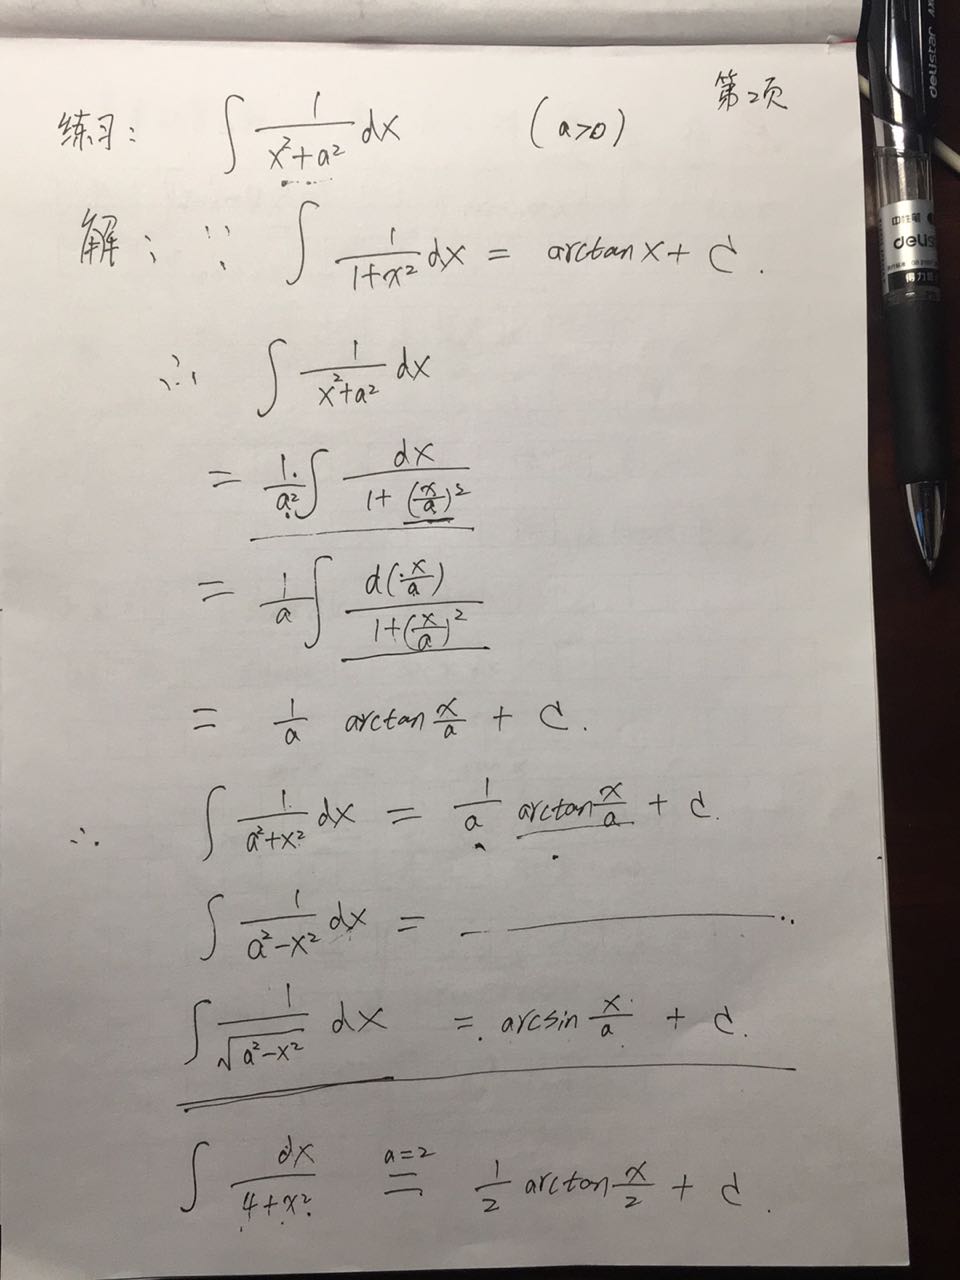 第2页
练习: ∫ 1/(x²+a²) dx (a>0)
解: ∵ ∫ 1/(1+x²) dx = arctan x + C.
∴ ∫ 1/(x²+a²) dx
= 1/a² ∫ dx/(1+(x/a)²)
= 1/a ∫ d(x/a)/(1+(x/a)²)
= 1/a arctan x/a + C.
∴ ∫ 1/(a²+x²) dx = 1/a arctan x/a + C.
∫ 1/(a²-x²) dx =
∫ 1/√(a²-x²) dx = arcsin x/a + C.
∫ dx/(4+x²) a=2 = 1/2 arctan x/2 + C.
delistar
中性笔
delis
得力